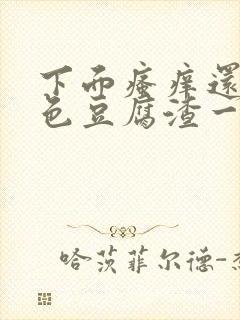 下而瘙痒還
色豆腐渣一
哈茨菲尔德-杰